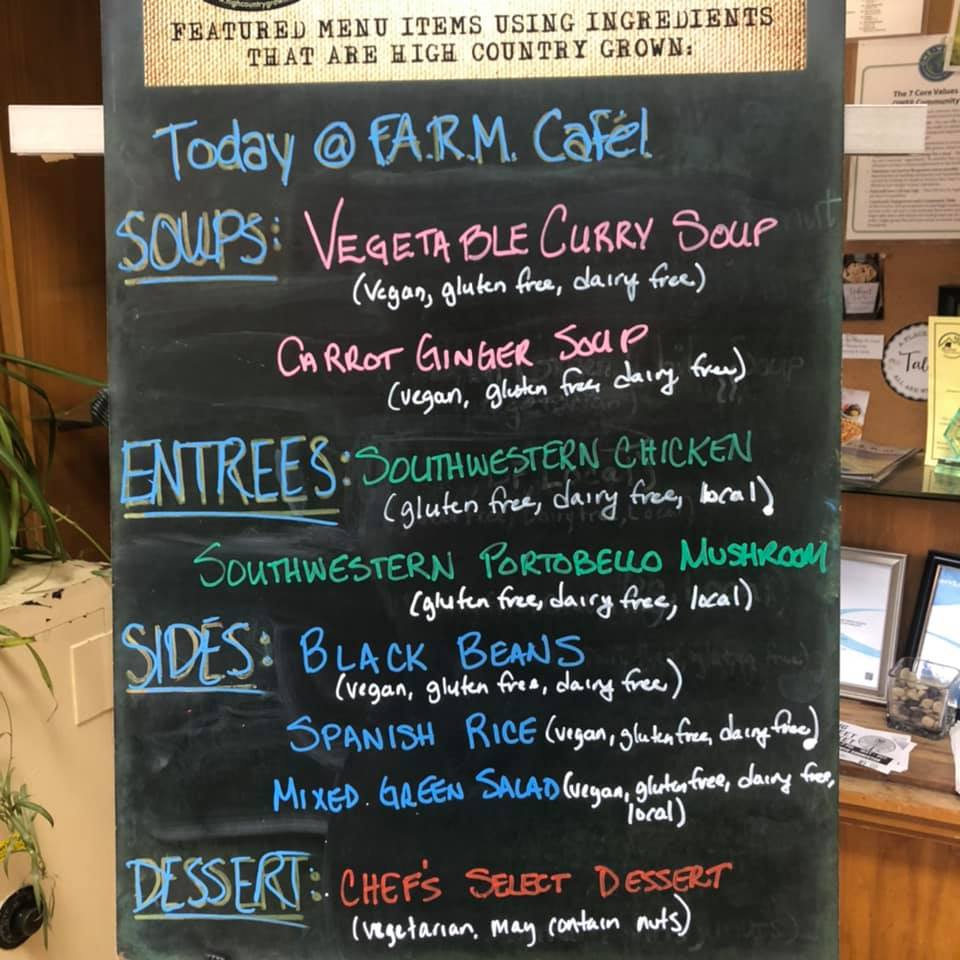 FEATURED MENU ITEMS USING INGREDIENTS
THAT ARE HIGH COUNTRY GROWN:
Today @ F.A.R.M. Café!
SOUPS: VEGETABLE CURRY SOUP
(vegan, gluten free, dairy free)
CARROT GINGER SOUP
(vegan, gluten free, dairy free)
ENTREES: SOUTHWESTERN CHICKEN
(gluten free, dairy free, local)
SOUTHWESTERN PORTOBELLO MUSHROOM
(gluten free, dairy free, local)
SIDES: BLACK BEANS
(vegan, gluten free, dairy free)
SPANISH RICE (vegan, gluten free, dairy free)
MIXED GREEN SALAD (vegan, gluten free, dairy free,
local)
DESSERT: CHEF'S SELECT DESSERT
(vegetarian, may contain nuts)
The 7 Core Values